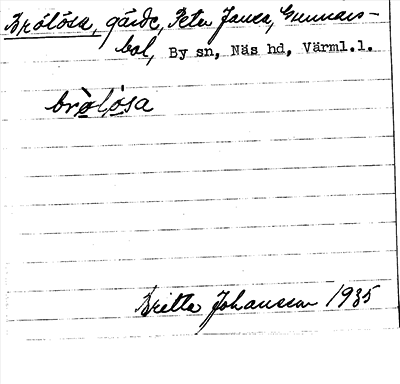 Brålösa, gärde, Peter Janes, Gunnars-
bol, By sn, Näs hd, Värml.l.
bròlósa
Britta Johansson 1935